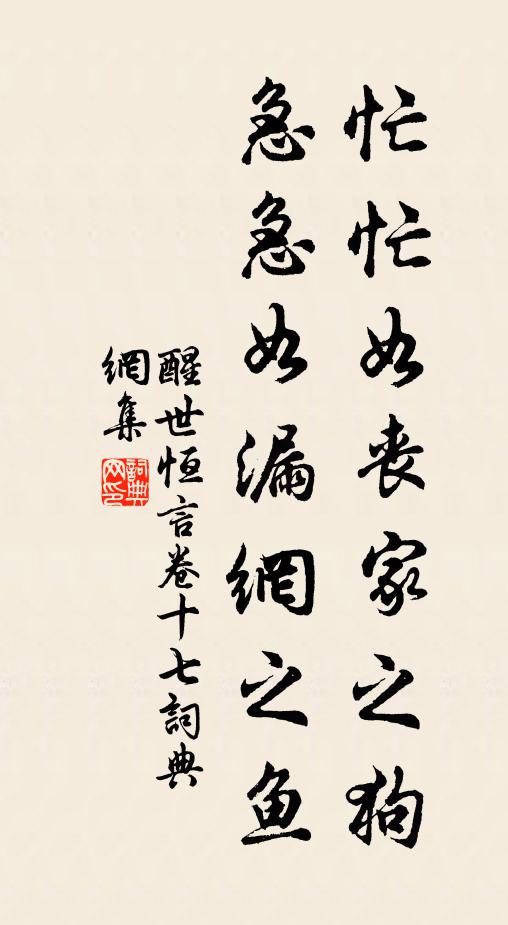 忙忙如丧家之狗
急急如漏網之鱼
醒世恒言卷十七詞典
網集
詞典
网印